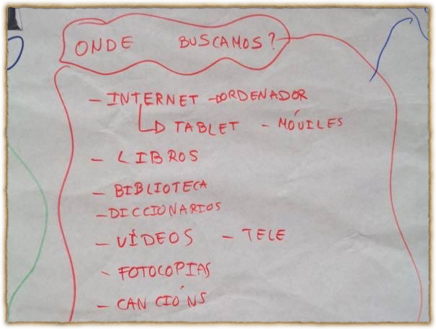 ONDE BUSCAMOS?
- INTERNET - ORDENADOR
TABLET - MÓVILES
- LIBROS
- BIBLIOTECA
- DICCIONARIOS
- VÍDEOS - TELE
- FOTOCOPIAS
- CANCIÓNS